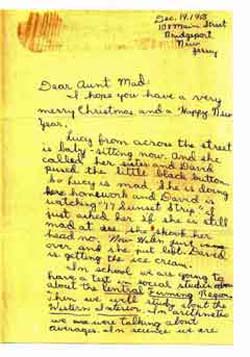 Dec. 19, 1963
108 Main Street
Bridgeport
New
Jersey
Dear Aunt Mad:
I hope you have a very
merry Christmas and a Happy New
Year.
Lucy from across the street
is baby-sitting now. And she
called her sister and David
pused the little black button
so Lucy is mad. She is doing
her homework and David is
watching "77 Sunset Strip." I
just asked her if she is still
mad at she shook her
head no. Mrs. just came
over and she put left. David
is getting the ice cream.
In school we are going to
have a test in social studies
about the Central Farming Region.
Then we will study about the
Western Interior. In arithmetic
we were talking about
averages. In science we are